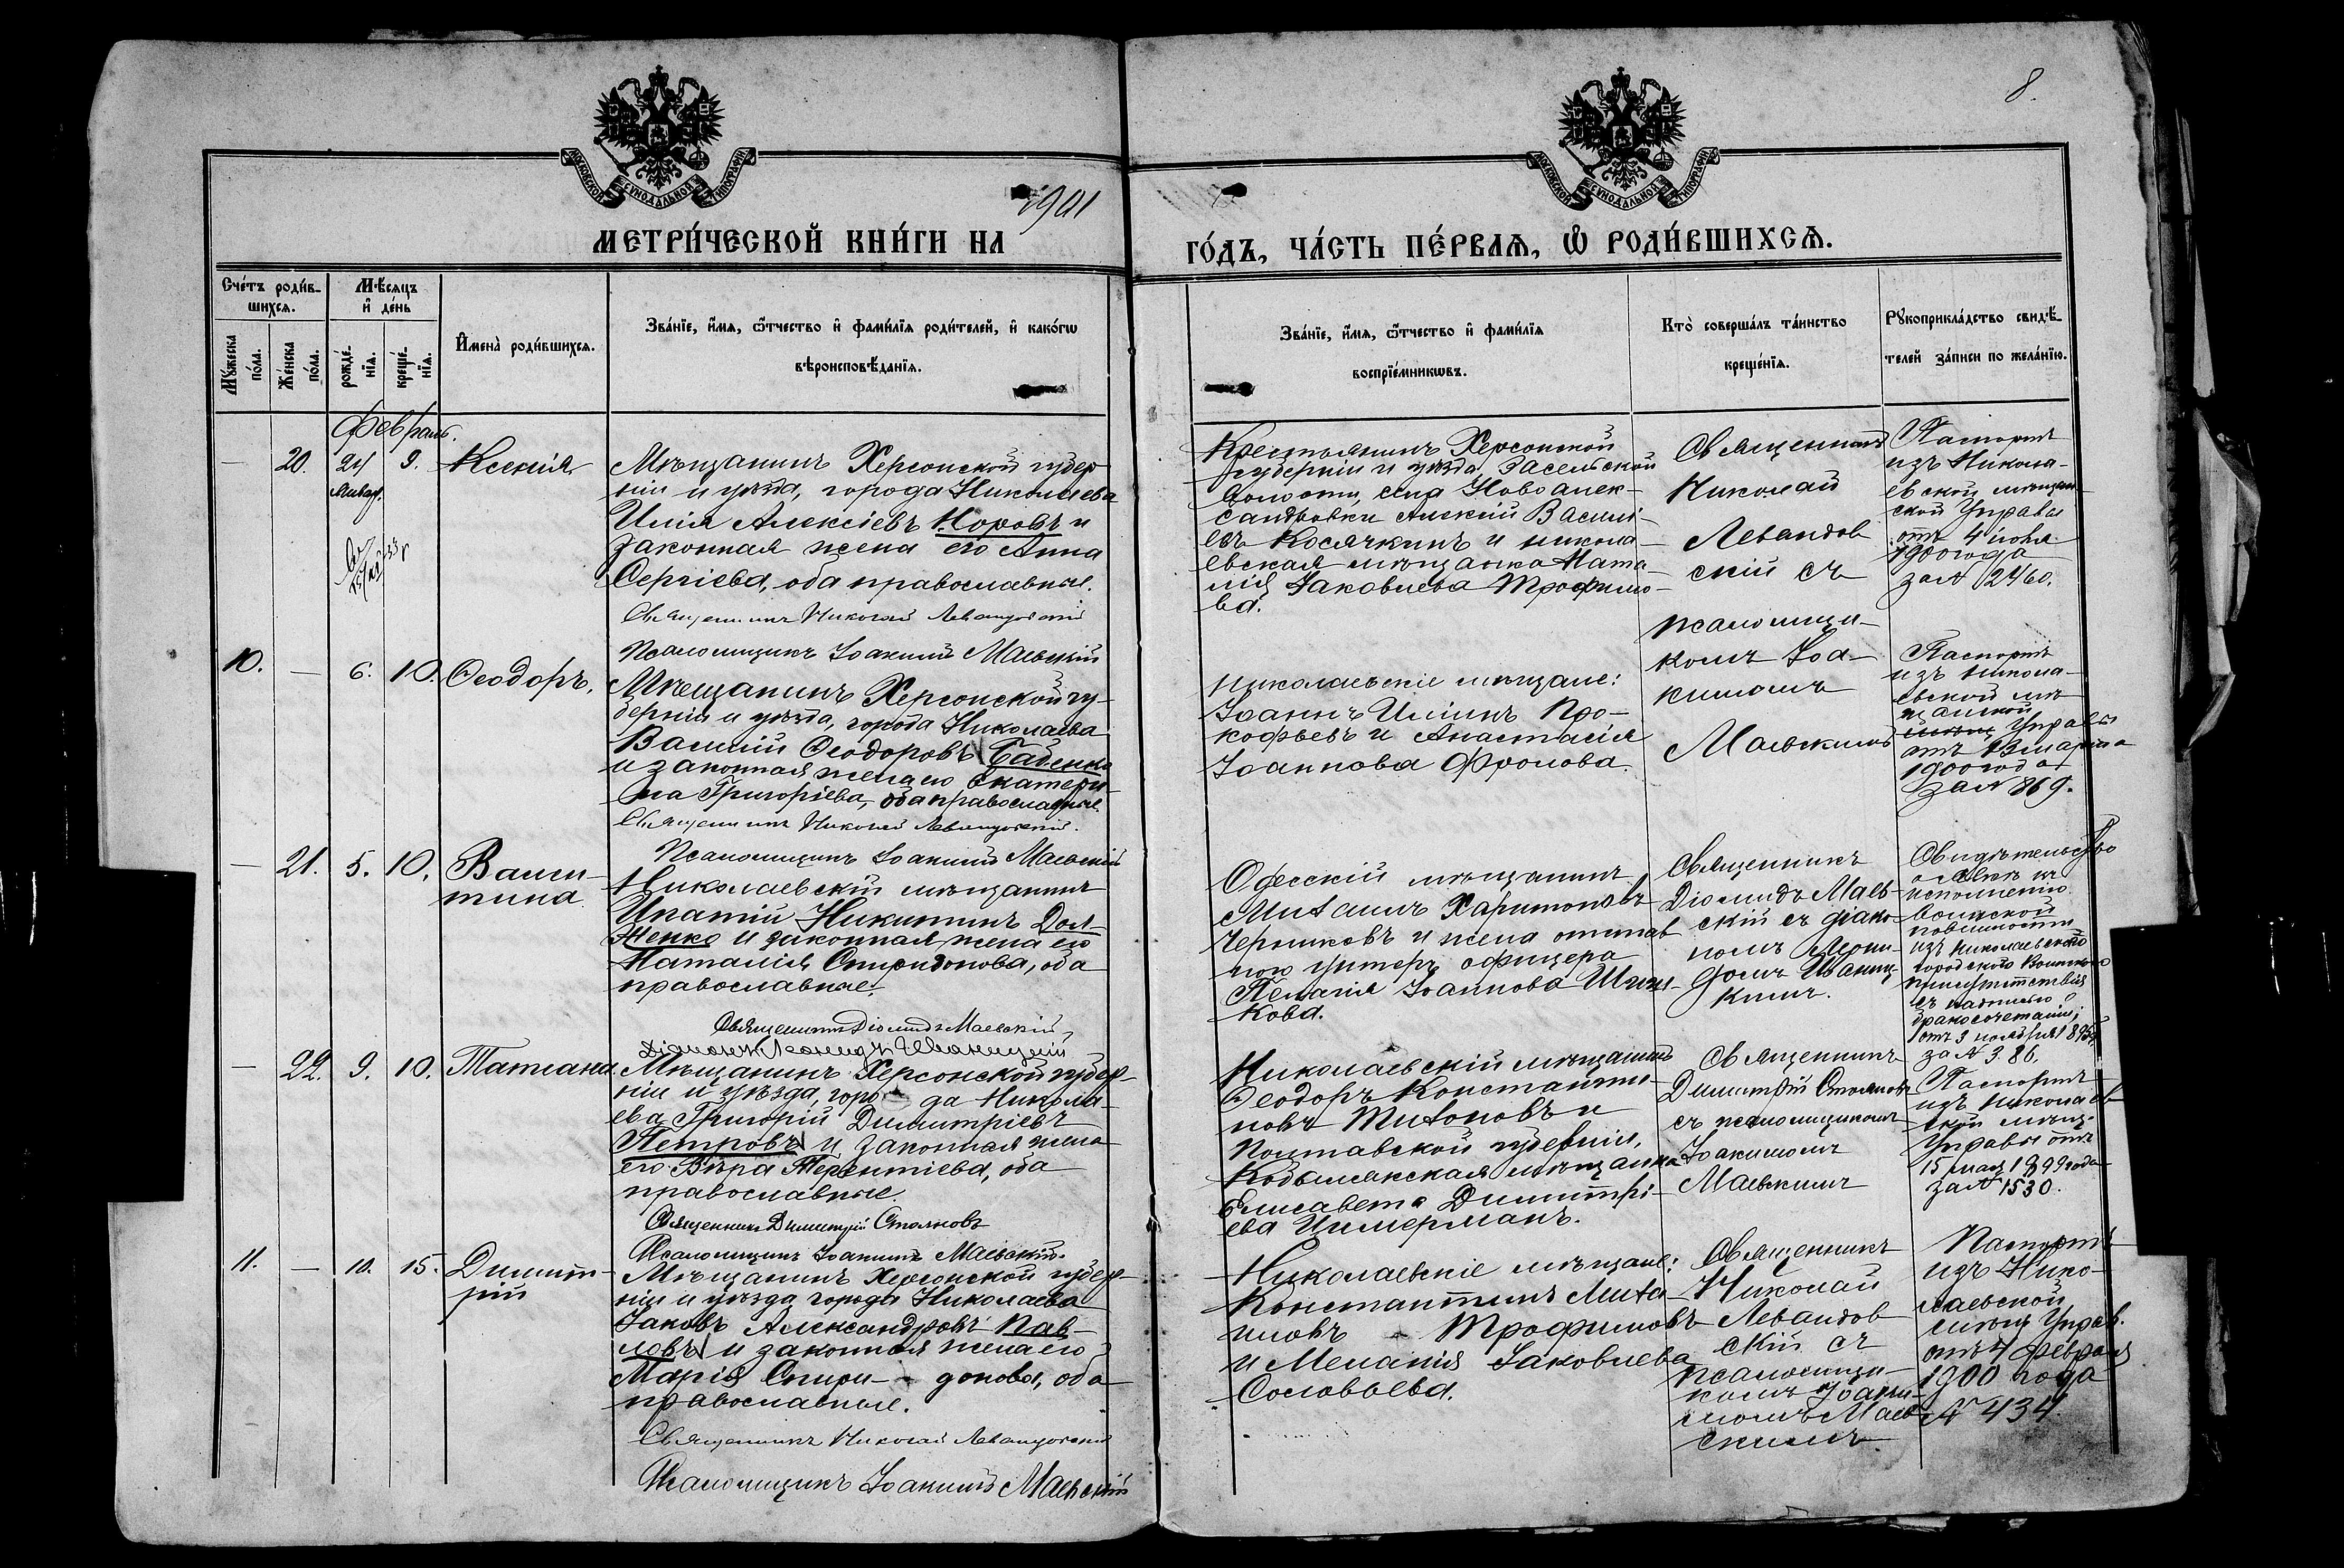 8.
МОСКОВСКОЙ СѴНОДАЛЬНОЙ ТИПОГРАФІИ
МОСКОВСКОЙ СѴНОДАЛЬНОЙ ТИПОГРАФІИ
1901
МЕТРИ́ЧЕСКОЙ КНИ́ГИ НА
ГО́ДЪ, ЧА́СТЬ ПЕ́РВАѦ, Ѡ҆ РОДИ́ВШИХСѦ.
Сче́тъ роди́в-
шихсѧ.
Мꙋ́жеска
по́ла.
Же́нска
по́ла.
Мѣ́сѧцъ
и҆ де́нь
рожде́-
нїѧ.
креще́-
нїѧ.
И҆мена̀ роди́вшихсѧ.
Зва́нїе, и҆́мѧ, ѻ҆́тчество и҆ фами́лїѧ роди́телей, и҆ како́гѡ
вѣроисповѣ́данїѧ.
Зва́нїе, и҆́мѧ, ѻ҆́тчество и҆ фами́лїѧ
воспрїе́мникѡвъ.
Кто̀ соверша́лъ та́инство
креще́нїѧ.
Рꙋкоприкла́дство свидѣ́-
телей за́писи по жела́нїю.
Февраль.
— 20. 24 9. Ксенія
Январ.
Мѣщанинъ Херсонской губер-
ніи и уѣзда, города Николаева
Илія Алексіевъ Норовъ и
законная жена его Анна
Сергіева, оба православные.
Священникъ Николай Левандовскій
Псаломщикъ Іоакимъ Маевскій
Крестьянинъ Херсонской
губерніи и уѣзда, Засельской
волости, села Новоалек-
сандровки Алексій Василі-
евъ Косячкинъ и никола-
евская мѣщанка Ната-
лія Іаковлева Трофимо-
ва.
Священникъ
Николай
Левандов
скій съ
псаломщи-
комъ Іоа-
кимомъ
Маевскимъ
Паспортъ
изъ Никола-
евской мѣщан-
ской Управы
отъ 4 іюня
1900 года
за N 2460.
10. — 6. 10. Ѳеодоръ.
Мѣщанинъ Херсонской гу-
берніи и уѣзда, города Николаева
Василій Ѳеодоровъ Бабенко
и законная жена его Екатери-
на Григоріева, оба православные.
Священникъ Николай Левандовскій.
Псаломщикъ Іоакимъ Маевскій
Николаевскіе мѣщане:
Іоаннъ Иліинъ Про-
кофьевъ и Анастасія
Іоаннова Фролова.
Паспортъ
изъ Никола-
евской мѣ
щанской
Управы
отъ марта
1900 года
за N 869.
— 21. 5. 10. Вален-
тина
Николаевскій мѣщанинъ
Ипатій Никитинъ Дол-
женко и законная жена его
Наталія Спиридонова, оба
православные.
Священникъ Діомидъ Маевскій
Діаконъ Леонидъ Иваницкій
Одесскій мѣщанинъ
Миѳаилъ Харитоновъ
Черниковъ и жена отстав
ного унтеръ офицера
Пелагія Іоаннова
кова.
Священникъ
Діомидъ Маев-
скій съ діако-
номъ Леони-
домъ Иваниц-
кимъ.
Свидѣтельство
о явкѣ къ
исполненію
воинской
повинности
изъ Николаевскаго
городского Воинского
присутствія
съ надписью о
бракосочетаніи,
отъ 3 ноября
за N 386.
— 22. 9. 10. Татіана
Мѣщанинъ Херсонской губер-
ніи и уѣзда, города Никола-
ева, Григорій Димитріевъ
Петровъ и законная жена
его Вѣра Терентіева, оба
православные.
Священникъ Димитрій Стояновъ
Псаломщикъ Іоакимъ Маевскій.
Николаевскій мѣщанинъ
Ѳеодоръ Константи-
новъ Тиѳоновъ и
Полтавской губерніи,
Кобылякская мѣщанка
Елисавета Димитрі-
ева Цимерманъ.
Священникъ
Димитрій Стояновъ
съ псаломщикомъ
Іоакимомъ
Маевскимъ
Паспортъ
изъ Николаев
ской мѣщ.
Управы отъ
15 мая 1899 года
за N 1530.
11. — 10. 15. Димит-
рій
Мѣщанинъ Херсонской губер-
ніи и уѣзда города Николаева
Іаковъ Александровъ Пав-
ловъ и законная жена его
Марія Спири- донова, оба
православные.
Священникъ Николай Левандовскій
Псаломщикъ Іоакимъ Маевскій
Николаевскіе мѣщане:
Константинъ Миѳа-
иловъ Трофимовъ
и Меланія Іаковлева
Соловьева.
Священникъ
Николай
Левандов
скій съ
псаломщи-
комъ Іоаки-
момъ Маев-
скимъ
Паспортъ
изъ Нико-
лаевской
мѣщ Управ.
отъ 4 февраля
1900 года
N 434